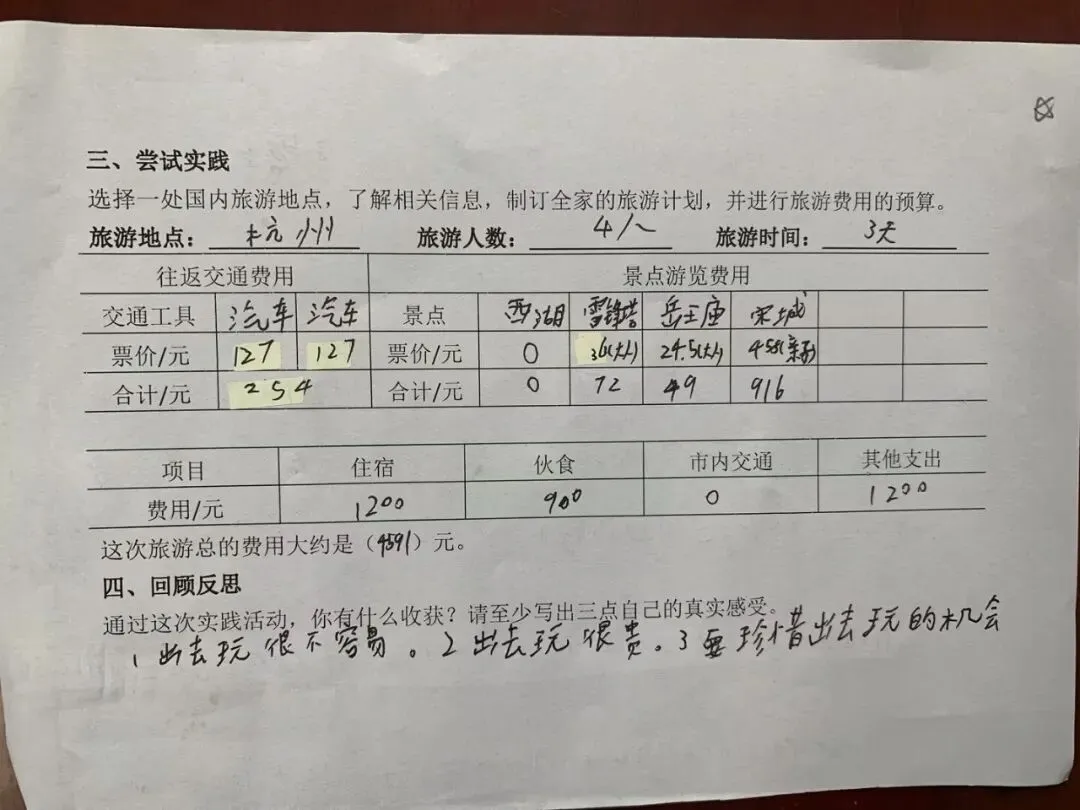 三、尝试实践
选择一处国内旅游地点，了解相关信息，制订全家的旅游计划，并进行旅游费用的预算。
旅游地点： 杭州 旅游人数： 4人 旅游时间： 3天
往返交通费用 景点游览费用
交通工具 汽车 汽车 景点 西湖 雷锋塔 岳王庙 宋城
票价/元 127 127 票价/元 0 36(大人) 24.5(大人) 458(亲子)
合计/元 254 合计/元 0 72 49 916
项目 住宿 伙食 市内交通 其他支出
费用/元 1200 900 0 1200
这次旅游总的费用大约是（4591）元。
四、回顾反思
通过这次实践活动，你有什么收获？请至少写出三点自己的真实感受。
1 出去玩很不容易。2 出去玩很贵。3 要珍惜出去玩的机会